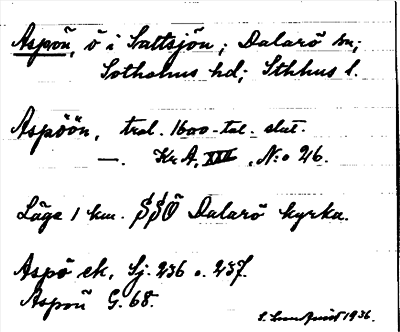 Aspön, ö i Saltsjön; Dalarö sn;
Sotholms hd; Sthlms l.
Aspöön, trol. 1600-tal. slut.
—. Kr. A. XXII, N:o 216.
Läge 1 km. SSÖ Dalarö kyrka.
Aspö ek, Sj. 236 o. 237.
Aspön G. 68.
1936.